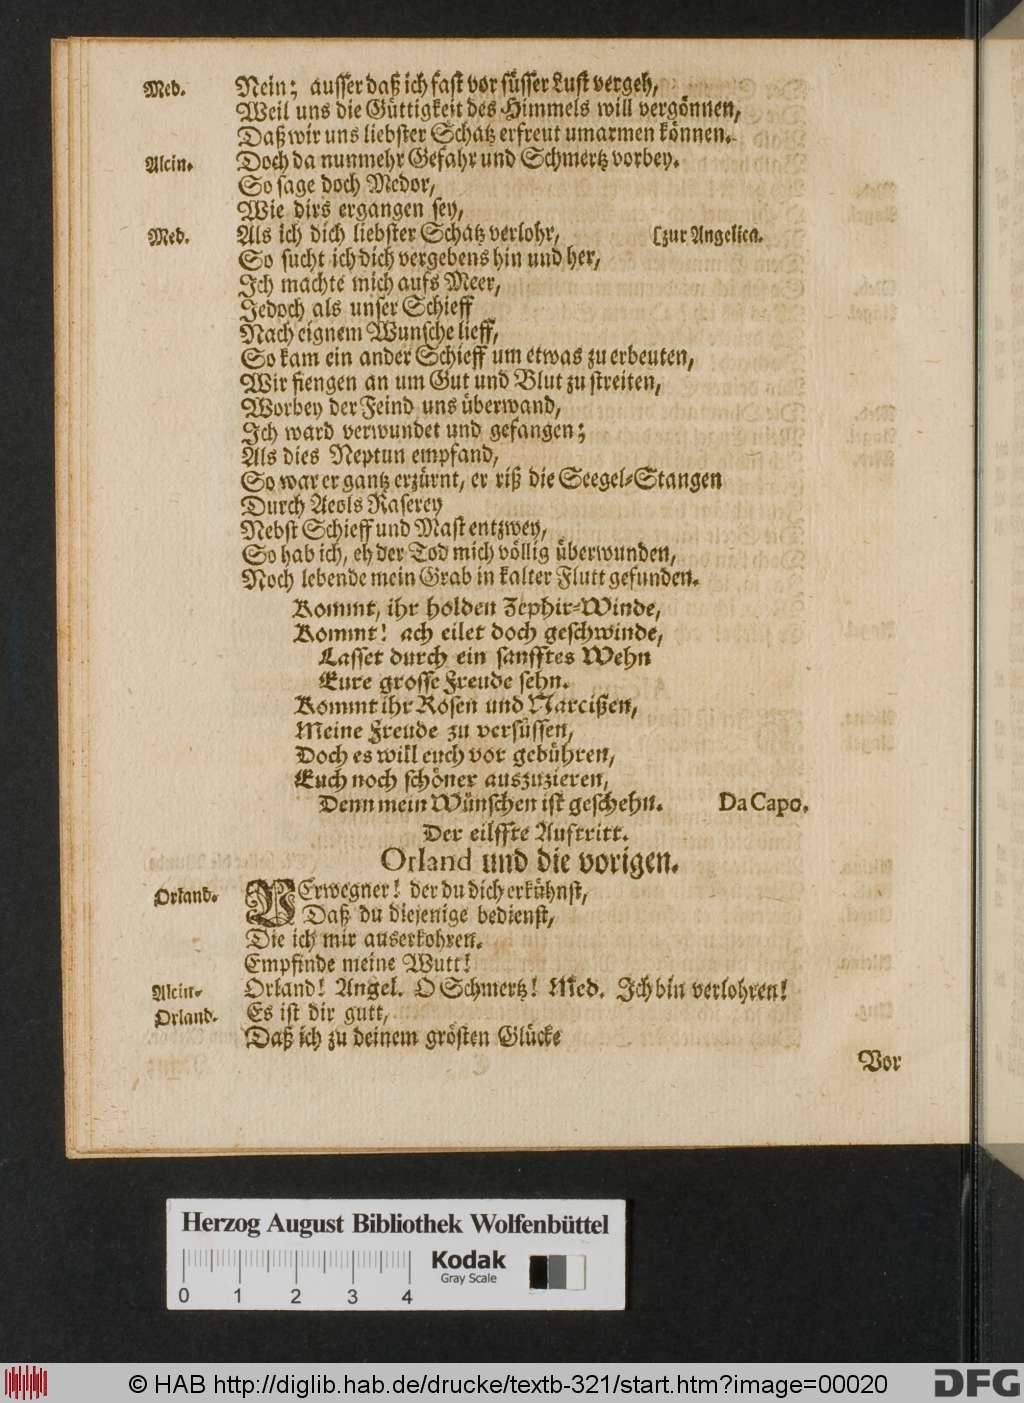 Med. Nein; ausser daß ich fast vor süsser Lust vergeh,
Weil uns die Güttigkeit des Himmels will vergönnen,
Daß wir uns liebster Schatz erfreut umarmen können.
Alcin. Doch da nunmehr Gefahr und Schmertz vorbey.
So sage doch Medor,
Wie dirs ergangen sey,
Med. Als ich dich liebster Schatz verlohr, [zur Angelica.
So sucht ich dich vergebens hin und her,
Ich machte mich aufs Meer,
Jedoch als unser Schieff
Nach eignem Wunsche lieff,
So kam ein ander Schieff um etwas zu erbeuten,
Wir fiengen an um Gut und Blut zu streiten,
Worbey der Feind uns überwand,
Ich ward verwundet und gefangen;
Als dies Neptun empfand,
So war er gantz erzürnt, er riß die Seegel-Stangen
Durch Aeols Raserey
Nebst Schieff und Mast entzwey,
So hab ich, eh der Tod mich völlig überwunden,
Noch lebende mein Grab in kalter Flutt gefunden.
Kommt, ihr holden Zephir-Winde,
Kommt! ach eilet doch geschwinde,
Lasset durch ein sanfftes Wehn
Eure grosse Freude sehn.
Kommt ihr Rosen und Narcißen,
Meine Freude zu versüssen,
Doch es will euch vor gebühren,
Euch noch schöner auszuzieren,
Denn mein Wünschen ist geschehn. Da Capo.
Der eilffte Auftritt.
Orland und die vorigen.
Orland. VErwegner! der du dich erkühnst,
Daß du diejenige bedienst,
Die ich mir auserkohren.
Empfinde meine Wutt!
Alcin. Orland! Angel. O Schmertz! Med. Ich bin verlohren!
Orland. Es ist dir gutt,
Daß ich zu deinem grösten Glücke
Vor
Herzog August Bibliothek Wolfenbüttel
Kodak
Gray Scale
0 1 2 3 4
© HAB http://diglib.hab.de/drucke/textb-321/start.htm?image=00020
DFG